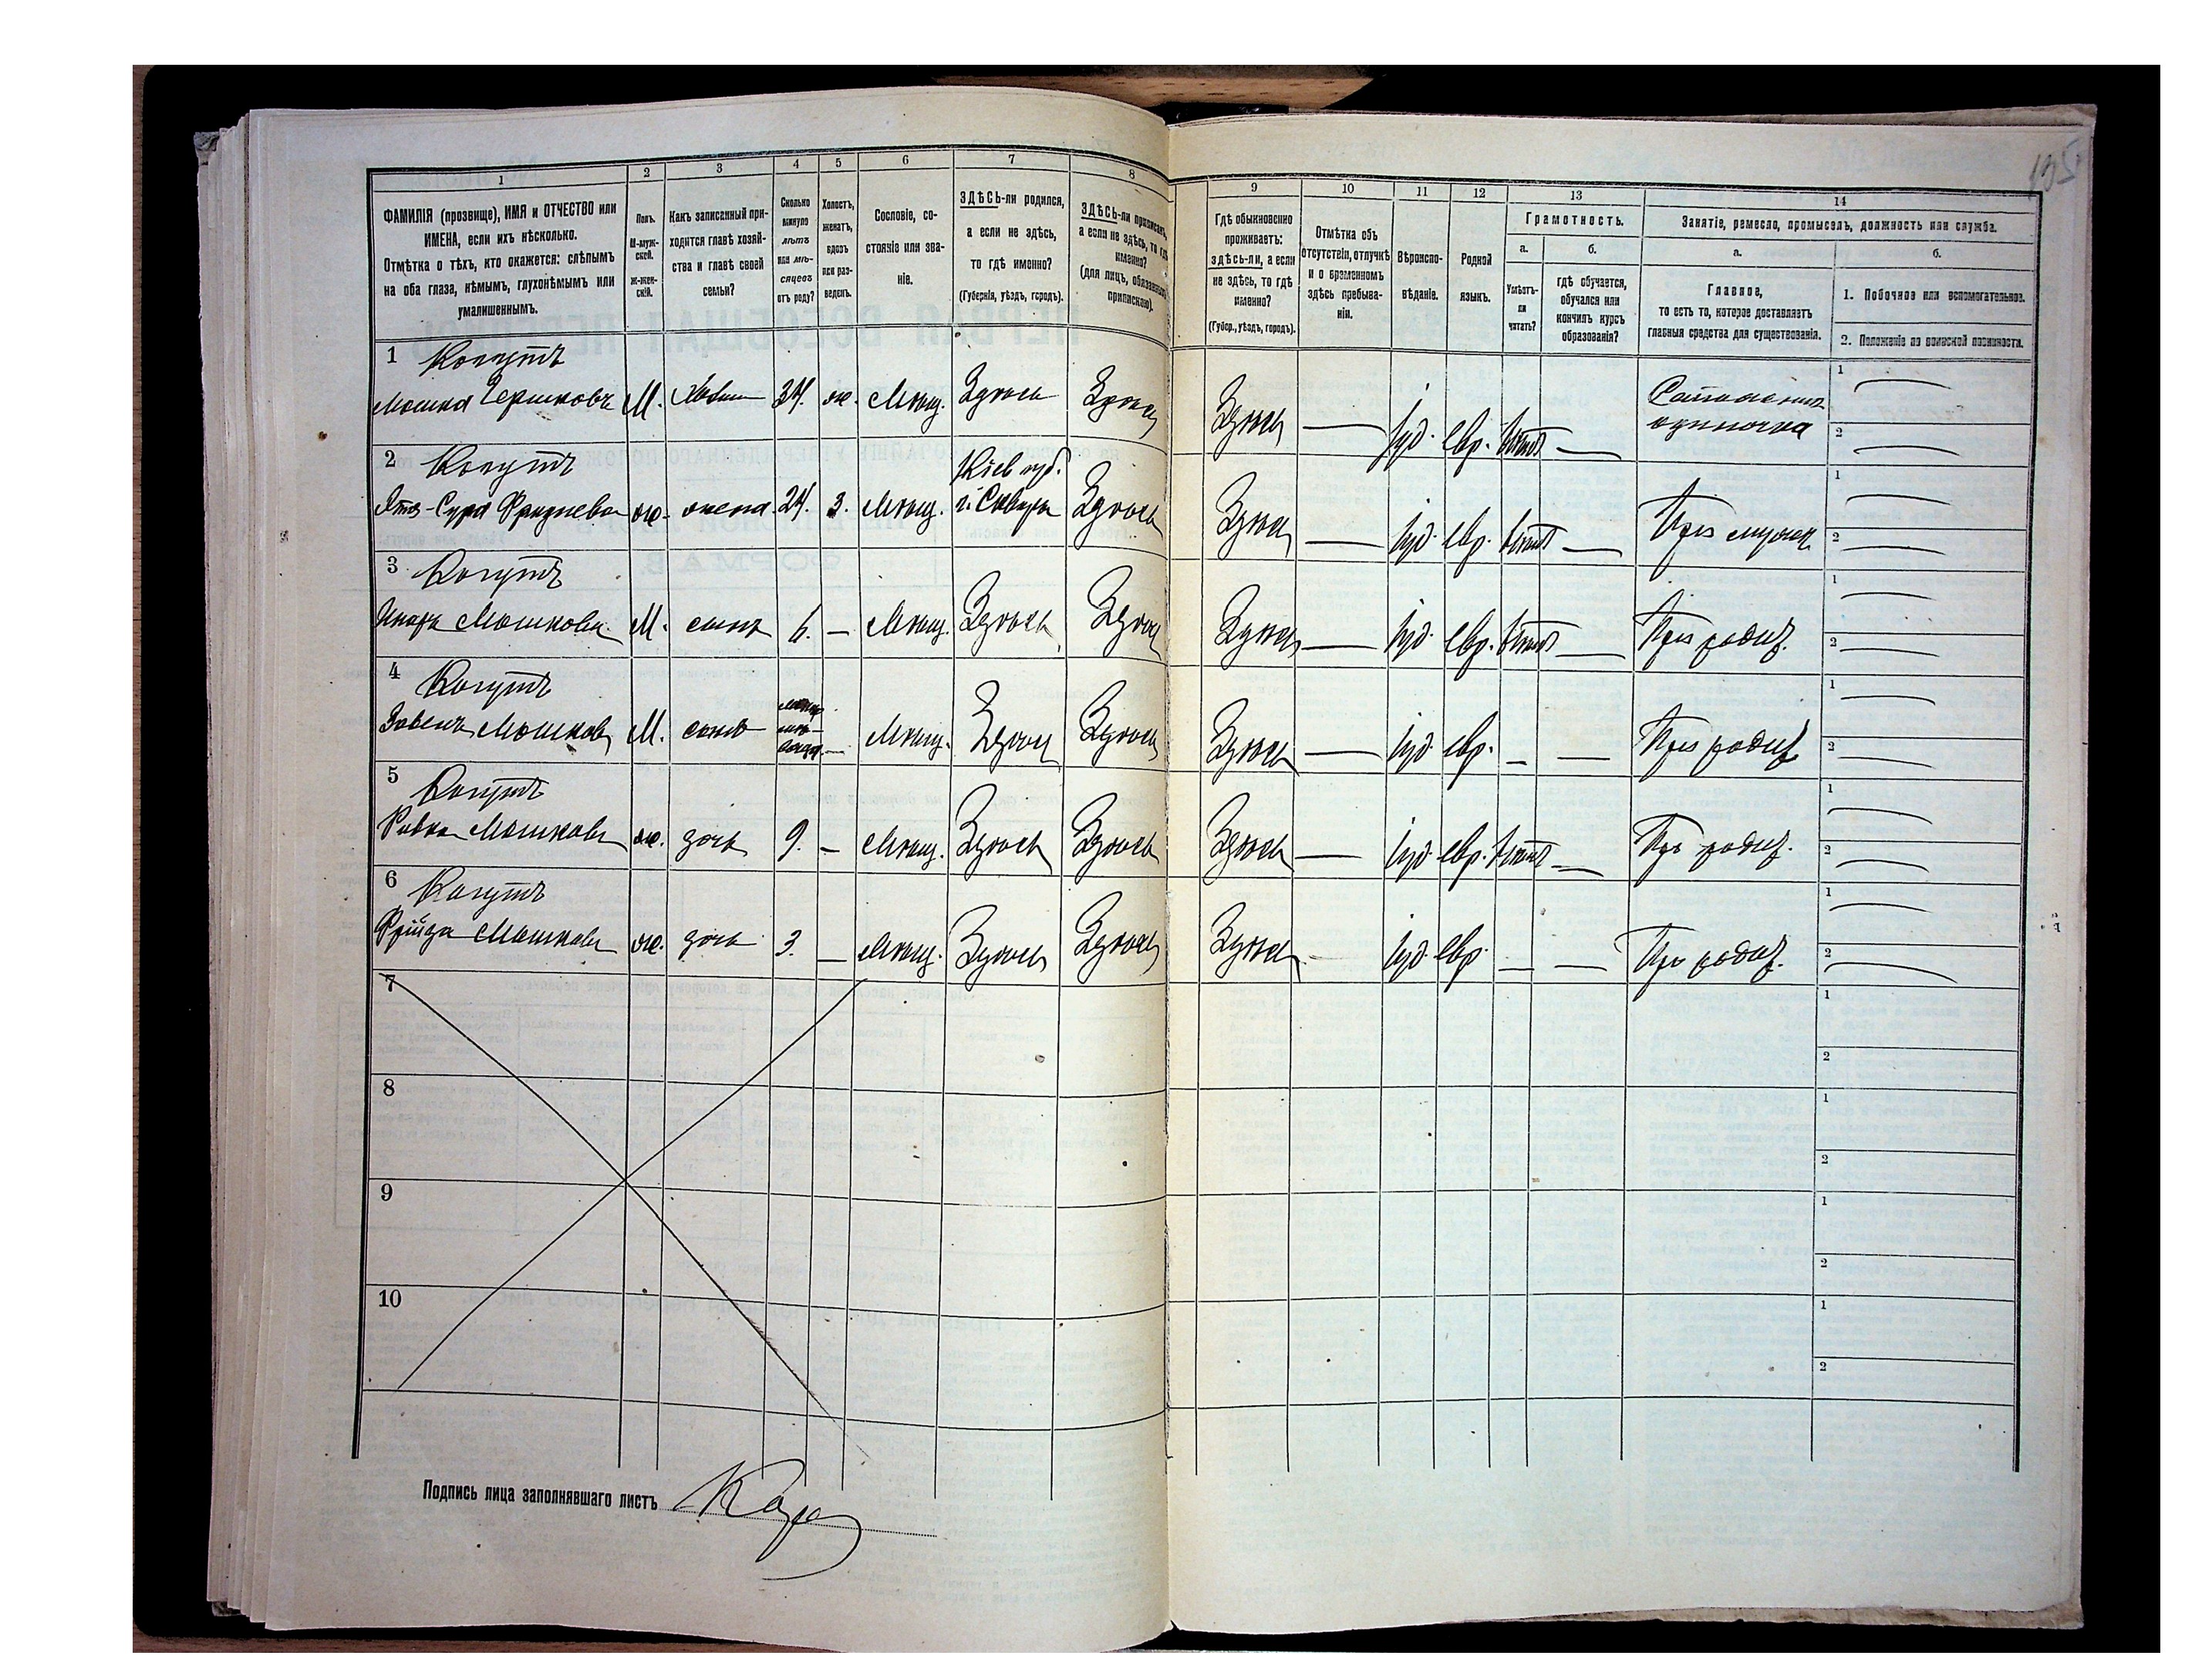 105
1
2
3
4
5
6
7
8
9
10
11
12
13
14
ФАМИЛІЯ (прозвище), ИМЯ и ОТЧЕСТВО или
ИМЕНА, если ихъ нѣсколько.
Отмѣтка о тѣхъ, кто окажется: слѣпымъ
на оба глаза, нѣмымъ, глухонѣмымъ или
умалишеннымъ.
Полъ.
М-муж-
ской.
Ж-жен-
скій.
Какъ записанный при-
ходится главѣ хозяй-
ства и главѣ своей
семьи?
Сколько
минуло
лѣтъ
или мѣ-
сяцевъ
отъ роду?
Холостъ,
женатъ,
вдовъ
или раз-
веденъ.
Сословіе, со-
стояніе или зва-
ніе.
ЗДѢСЬ-ли родился,
а если не здѣсь,
то гдѣ именно?
(Губернія, уѣздъ, городъ).
ЗДѢСЬ-ли приписанъ,
а если не здѣсь, то гдѣ
именно?
(для лицъ, обязанныхъ
припискою).
Гдѣ обыкновенно
проживаетъ:
здѣсь-ли, а если
не здѣсь, то гдѣ
именно?
(Губер., уѣздъ, городъ).
Отмѣтка объ
отсутствіи, отлучкѣ
и о временномъ
здѣсь пребыва-
ніи.
Вѣроиспо-
вѣданіе.
Родной
языкъ.
Грамотность.
а.
б.
Умѣетъ-
ли
читать?
гдѣ обучается,
обучался или
кончилъ курсъ
образованія?
Занятіе, ремесло, промыселъ, должность или служба.
а.
б.
Главное,
то есть то, которое доставляетъ
главныя средства для существованія.
1. Побочное или вспомогательное.
2. Положеніе по воинской повинности.
1 Когутъ
Мошка Гершковъ М. 34. ж. Мѣщ. Здѣсь Здѣсь Здѣсь — іуд. евр. — 1
одиночка 2
2 Когутъ Кіев. губ.
Сура ж. жена 24. з. Мѣщ. г. Сквира Здѣсь Здѣсь — іуд. евр. — При мужѣ 1 2
3 Когутъ
Мошковъ М. сынъ 6. — Мѣщ. Здѣсь Здѣсь Здѣсь — іуд. евр. — При родит. 1 2
4 Когутъ
Мошковъ М. сынъ — Мѣщ. Здѣсь Здѣсь Здѣсь — іуд. евр. — — При родит. 1 2
5 Когутъ
Ривка Мошкова ж. дочь 9. — Мѣщ. Здѣсь Здѣсь Здѣсь — іуд. евр. — При родит. 1 2
6 Когутъ
Фрейда Мошкова ж. дочь 3. — Мѣщ. Здѣсь Здѣсь Здѣсь — іуд. евр. — — При родит. 1 2
7 1 2
8 1 2
9 1 2
10 1 2
Подпись лица заполнявшаго листъ